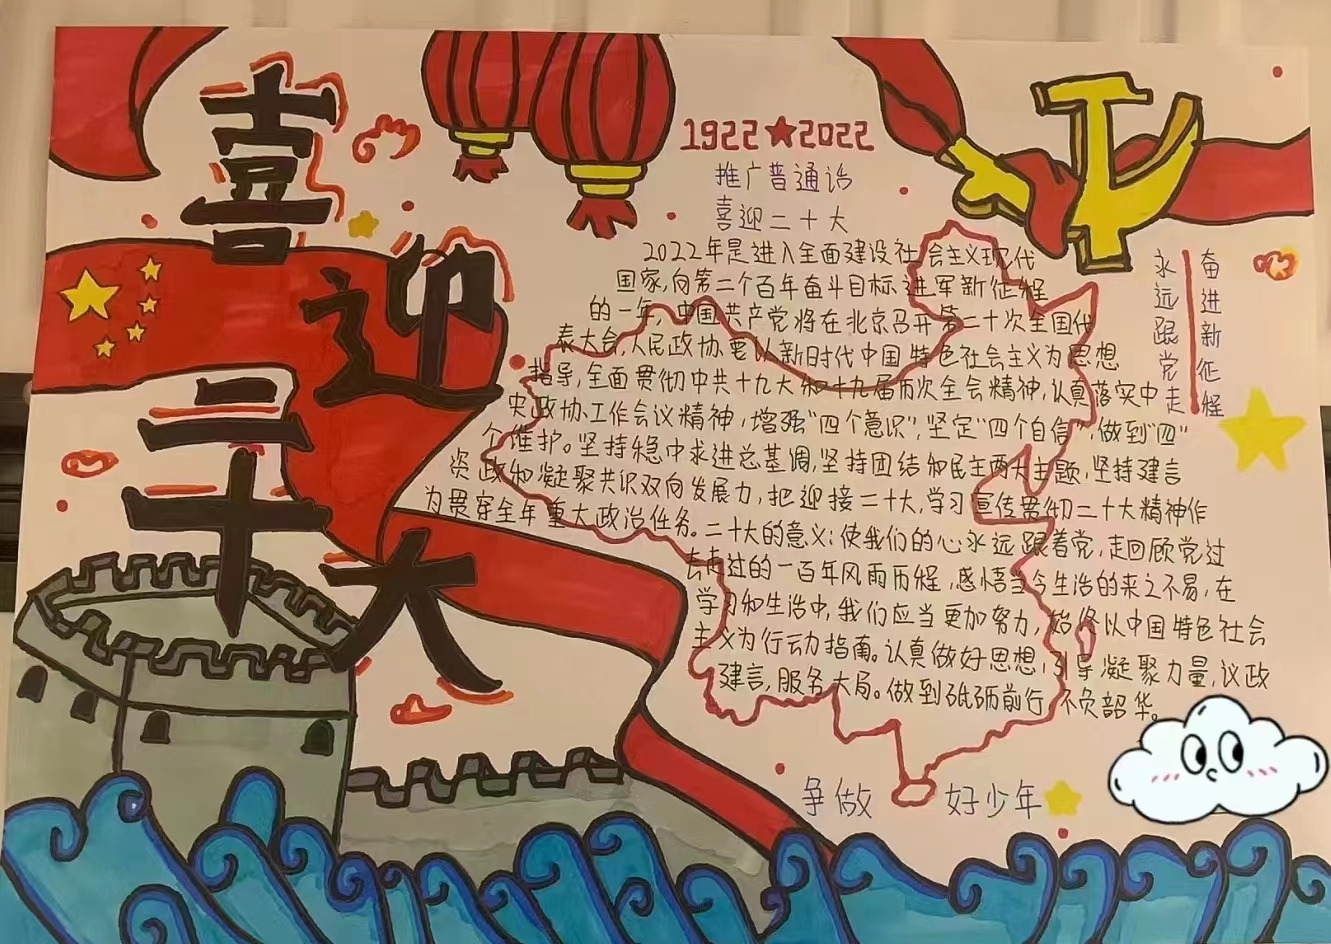 喜迎二十大
1922★2022
推广普通话
喜迎二十大
2022年是进入全面建设社会主义现代
国家,向第二个百年奋斗目标进军新征程
的一年,中国共产党将在北京召开第二十次全国代
表大会,人民政协要以新时代中国特色社会主义为思想
指导,全面贯彻中共十九大和十九届历次全会精神,认真落实中
央政协工作会议精神,增强“四个意识”,坚定“四个自信”,做到“四”
个维护。坚持稳中求进总基调,坚持团结和民主两大主题,坚持建言
资政和凝聚共识双向发展力,把迎接二十大,学习宣传贯彻二十大精神作
为贯穿全年重大政治任务。二十大的意义:使我们的心永远跟着党,走回顾党过
去走过的一百年风雨历程,感悟当今生活的来之不易,在
学习和生活中,我们应当更加努力,始终以中国特色社会
主义为行动力指南。认真做好思想,引导凝聚力量,议政
建言,服务大局。做到砥砺前行,不负韶华。
奋进新征程
永远跟党走
争做 好少年